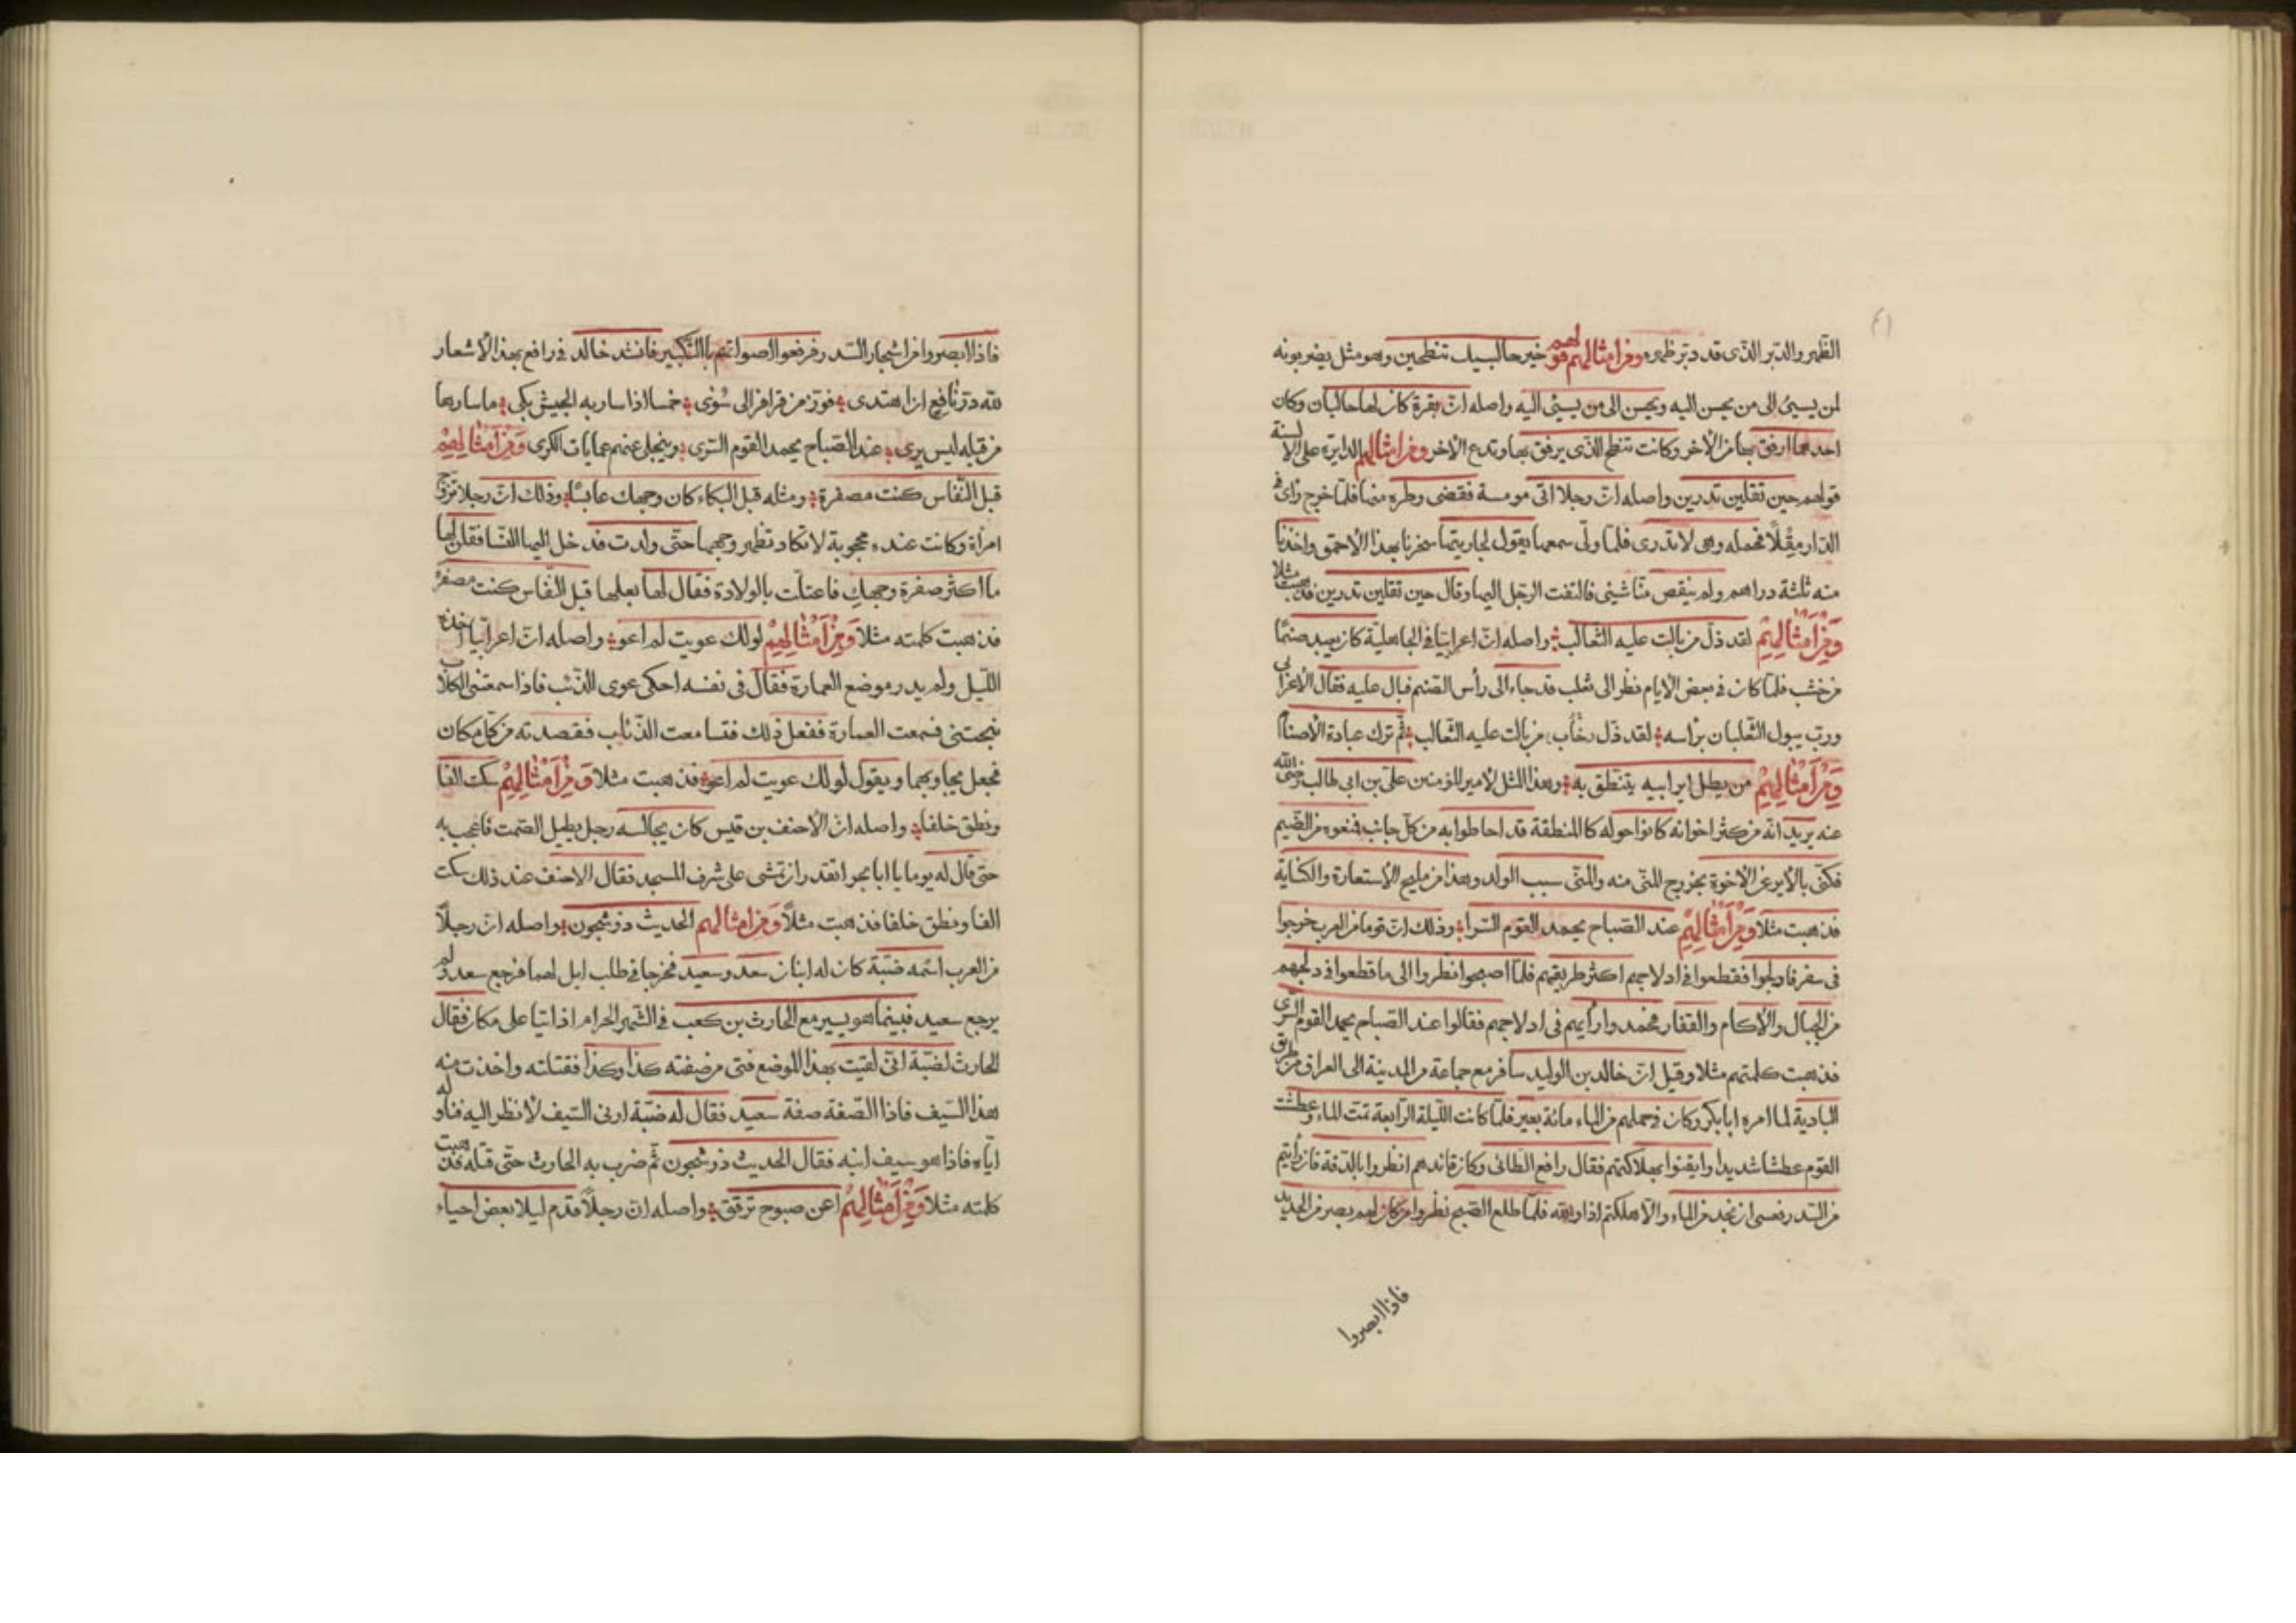 ٤١
الظهر والدبر الذى قد دبر ظهره ومن امثالهم قولهم خير حالبيك تنطحين وهو مثل يضربونه
لمن يسئ الى من يحسن اليه ويحسن الى من يسئ اليه واصله ان بقرة كان لها حالبان وكان
احدهما ارفق بها من الاخر وكانت تنطح الذى يرفق بها وتدع الاخر ومن امثالهم الدايرة على الالسنة
قولهم حين تقلين تدرين واصله ان رجلا اتى مومسة فقضى وطره منها فلما خرج رأى فى
الدار مقلًا فحمله وهى لا تدرى فلما ولى سمعها تقول لجاريتها سخرنا بهذا الاحمق واخذنا
منه ثلثة دراهم ولم ينقص منا شيئى فالتفت الرجل اليها وقال حين تقلين تدرين فذهبت مثلا
وَمِنْ اَمْثَالِهِمْ لقد ذل من بالت عليه الثعالب واصله ان اعرابيا فى الجاهلية كان يعبد صنما
من خشب فلما كان فى بعض الايام نظر الى ثعلب قد جاء الى رأس الصنم فبال عليه فقال الاعرابى
ورب يبول الثعلبان برأسه لقد ذل من بالت عليه الثعالب ثم ترك عبادة الاصنام
وَمِنْ اَمْثَالِهِمْ من يطل اير ابيه يتنطق به وهذا المثل لامير المؤمنين على بن ابى طالب رضى الله
عنه يريد انه من كثر اخوانه كانوا حوله كالمنطقة قد احاطوا به من كل جانب فمنعوه من الضيم
فكنى بالاير عن الاخوة بخروج المنى منه والمنى سبب الولد وهذا من مليح الاستعارة والكناية
فذهبت مثلا وَمِنْ اَمْثَالِهِمْ عند الصباح يحمد القوم السرا وذلك ان قوما من العرب خرجوا
فى سفر فادلجوا فقطعوا فى ادلاجهم اكثر طريقهم فلما اصبحوا نظروا الى ما قطعوا فى دلجهم
من الجبال والاكام والقفار فحمدوا رأيهم فى ادلاجهم فقالوا عند الصباح يحمد القوم السرى
فذهبت كلمتهم مثلا وقيل ان خالد بن الوليد سافر مع جماعة من المدينة الى العراق من طريق
البادية لما امره ابا بكر وكان فى حملهم من الماء مائة بعير فلما كانت الليلة الرابعة تمت الماء وعطشت
القوم عطشا شديدا وايقنوا بهلاكتهم فقال رافع الطائى وكان قائدهم انظروا بالدقة فان رأيتم
من السدر فعسى ان نجد من الماء والا هلكتم فلما طلع الصبح نظروا من كان لهم بصر من الحديد
فاذا ابصروا
فاذا ابصروا من اشجار السدر فرفعوا اصواتهم بالتكبير فانشد خالد فى رافع بهذا الاشعار
لله در نافع ان اهتدى فوز من قراقر الى سُوى خمسا اذا سار به الجيش بكى ما سارها
من قبله ليس يرى عند الصباح يحمد القوم السرى وينجلى عنهم عمايات الكرى وَمِنْ اَمْثَالِهِمْ
قبل النفاس كنت مصفرة ومثله قبل البكاء كان وجهك عابسا وذلك ان رجلا تزوج
امرأة وكانت عنده محجوبة لا تكاد تظهر وجهها حتى ولدت فدخل اليها النسا فقلن لها
ما اكثر صفرة وجهكِ فاعتلت بالولادة فقال لها بعلها قبل النفاس كنت مصفرة
فذهبت كلمته مثلا وَمِنْ اَمْثَالِهِمْ لو لك عويت لم اعو واصله ان اعرابيا اخذه
الليل ولم يدر موضع العمارة فقال فى نفسه احكى عوى الذئب فاذا سمعتنى الكلاب
نبحتنى فسمعت العمارة ففعل ذلك فتسامعت الذئاب فقصدته من كل مكان
فجعل يجاوبها ويقول لو لك عويت لم اعو فذهبت مثلا وَمِنْ اَمْثَالِهِمْ سكت الفا
ونطق خلفا واصله ان الاحنف بن قيس كان يجالسه رجل يطيل الصمت فاعجب به
حتى قال له يوما يا ابا بحر اتقدر ان تمشى على شرف المسجد فقال الاحنف عند ذلك سكت
الفا ونطق خلفا فذهبت مثلًا وَمن امثالهم الحديث ذو شجون واصله ان رجلًا
من العرب اسمه ضبة كان له ابنان سعد وسعيد فخرجا فى طلب ابل لهما فرجع سعد ولم
يرجع سعيد فبينما هو يسير مع الحارث بن كعب فى الشهر الحرام اذ اتيا على مكان فقال
الحارث لضبة انى لقيت بهذا الموضع فتى من صفته كذا وكذا فقتلته واخذت منه
هذا السيف فاذا الصفة صفة سعيد فقال له ضبة ارنى السيف لانظر اليه فناوله
اياه فاذا هو سيف ابنه فقال الحديث ذو شجون ثم ضرب به الحارث حتى قتله فذهبت
كلمته مثلا وَمِنْ اَمْثَالِهِمْ اعن صبوح ترقق واصله ان رجلًا قدم ليلا بعض احياء